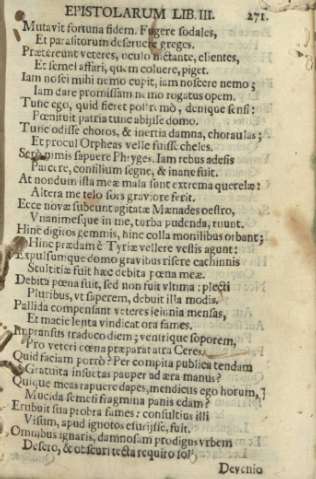 EPISTOLARUM LIB. III. 271.
Mutavit fortuna fidem. Fugere sodales,
Et parasitorum deseruere greges.
Præterêunt veteres, oculo nictante, clientes,
Et semel affari, quem coluere, piget.
Iam nosci mihi nemo cupit, iam noscere nemo;
Iam dare promissam nemo rogatus opem.
Tunc ego, quid fieret potui mò, denique sensi:
Pœniruit patria tunc abijsse domo.
Tunc odisse choros, & inertia damna, choraulas;
Et procul Orpheas velle fuisse cheles.
Serò nimis sapuere Phryges. Iam rebus adesis
Parcere, consilium segne, & inane fuit.
At nondum ista meæ mala sunt extrema querelæ:
Altera me telo sors graviore ferit.
Ecce novæ subeunt agitatæ Mænades oestro,
Vnanimesque in me, turba pudenda, ruunt.
Hinc digitos gemmis, hinc colla monilibus orbant;
Hinc prædam è Tyriæ vellere vestis agunt:
Expulsumque domo gravibus risere cachinnis
Stultitiæ fuit hæc debita pœna meæ.
Debita pœna fuit, sed non fuit vltima: plecti
Pluribus, vt saperem, debuit illa modis.
Pallida compensant veteres ieiunia mensas,
Et macie lenta vindicat ora fames.
Impransus traduco diem; ventrique soporem,
Pro veteri cœna præparat atra Ceres.
Quid faciam porrò? Per compita publica tendam
Gratuita insuetas pauper ad æra manus?
Quique meas rapuere dapes, mendicus ego horum,
Mucida semeti fragmina panis edam?
Erubuit sua probra fames: consultius illi
Visum, apud ignotos esurijsse, fuit.
Omnibus ignaris, damnosam prodigus vrbem
Desero, & obscuri tecta requiro
Devenio